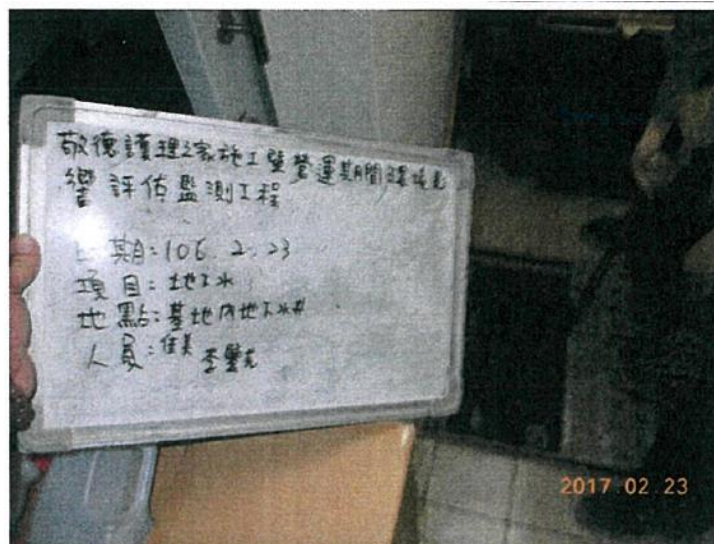 敬德護理之家施工暨營運期間環境影
響評估監測工程
日期:106.2.23
項目:地下水
地點:基地內地下水井
人員:佳美 李
2017.02.23